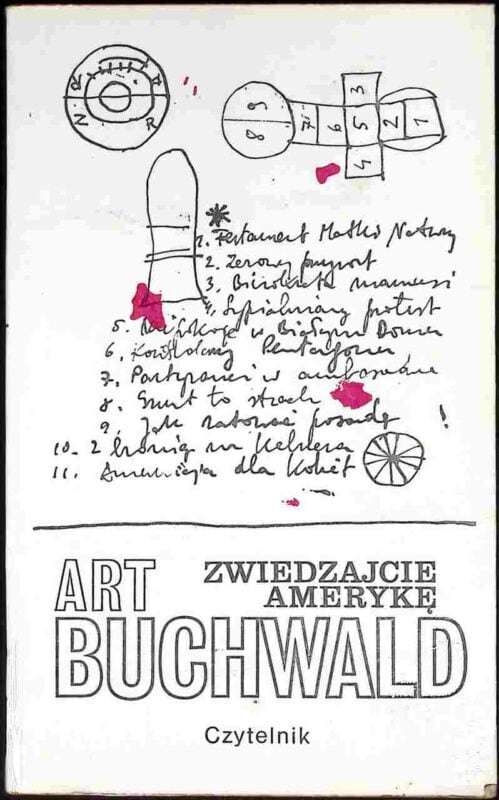 N R
9 3
8 7 6 5 2 1
4
1. Testament Matki Natury
2. Zerowy przyrost
3.
4. Sypialniany protest
5. w Białym Domu
6. Pentagonu
7. Partyzanci w ambasadzie
8. Grunt to strach
9. Jak ratować posadę !
10. Z bronią na kelnera
11. dla kobiet
ART ZWIEDZAJCIE
AMERYKĘ
BUCHWALD
Czytelnik